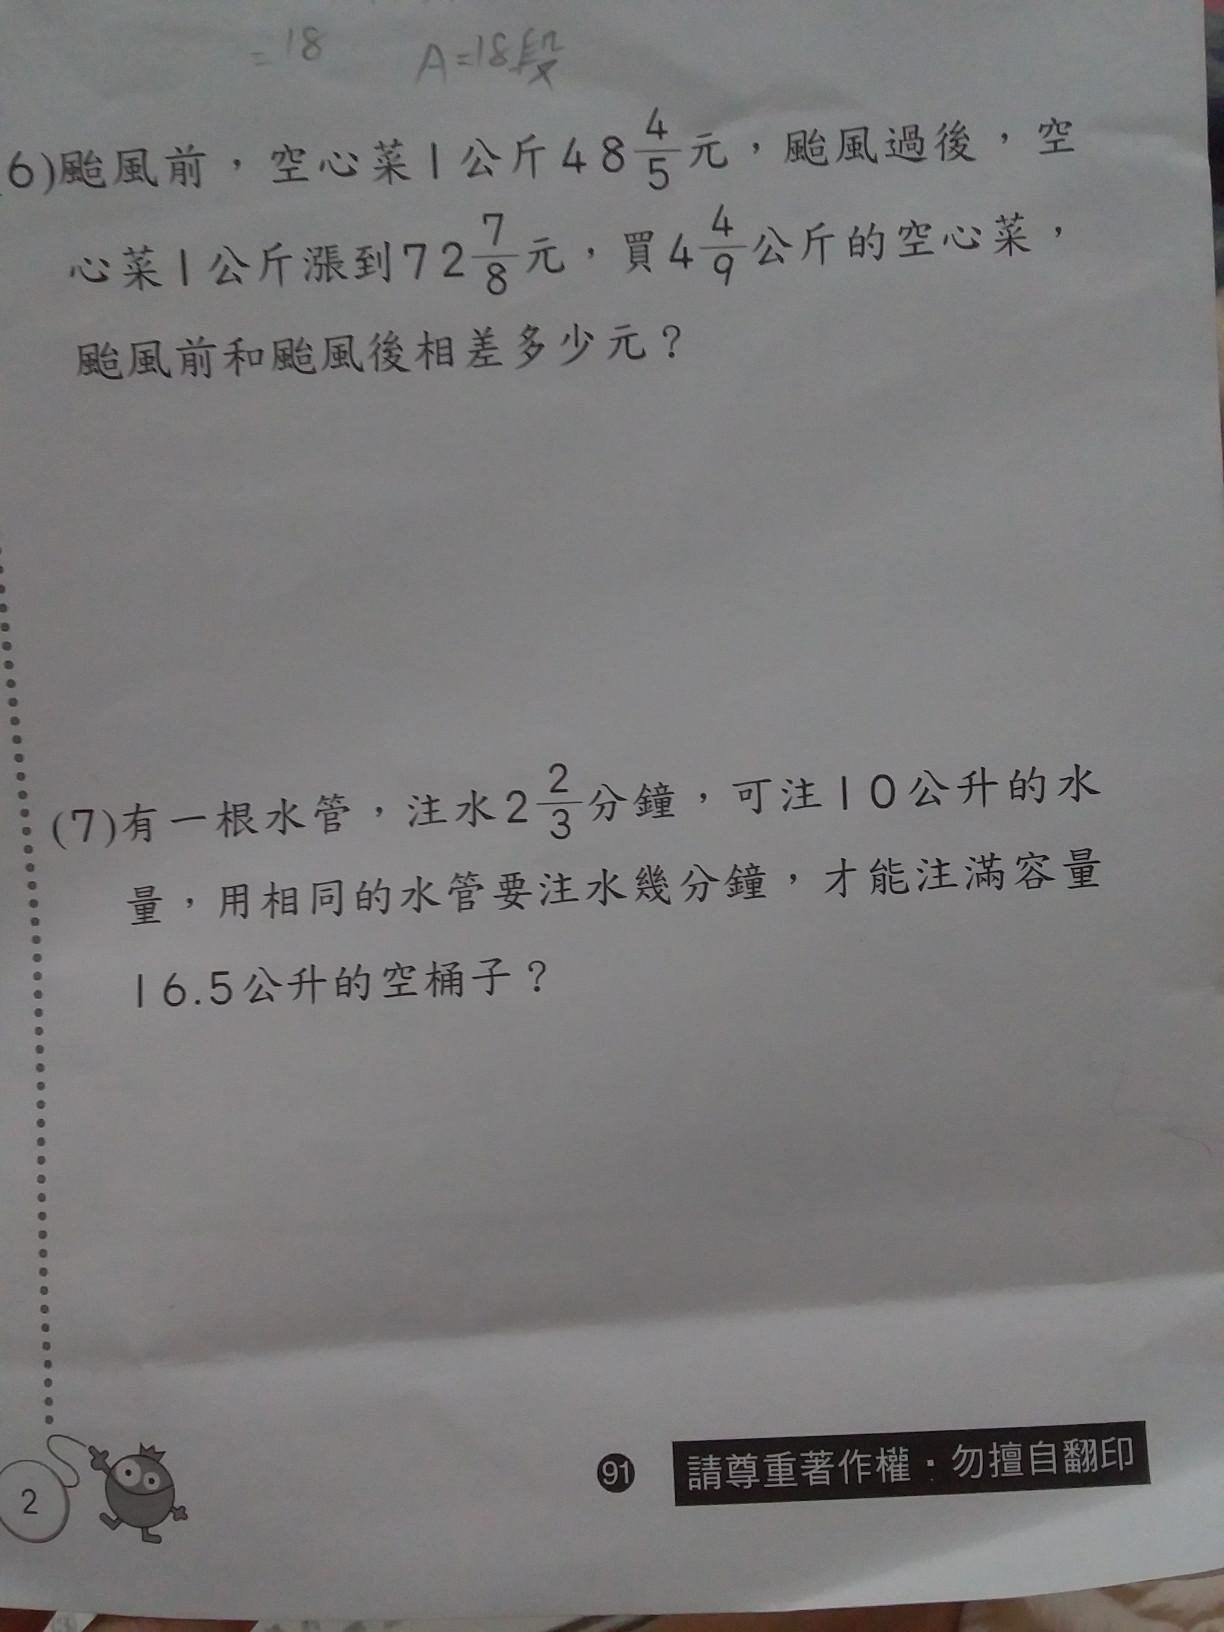 =18 A=18段
6)颱風前，空心菜1公斤48 4/5元，颱風過後，空
心菜1公斤漲到72 7/8元，買4 4/9公斤的空心菜，
颱風前和颱風後相差多少元？
(7)有一根水管，注水2 2/3分鐘，可注10公升的水
量，用相同的水管要注水幾分鐘，才能注滿容量
16.5公升的空桶子？
2
91 請尊重著作權．勿擅自翻印